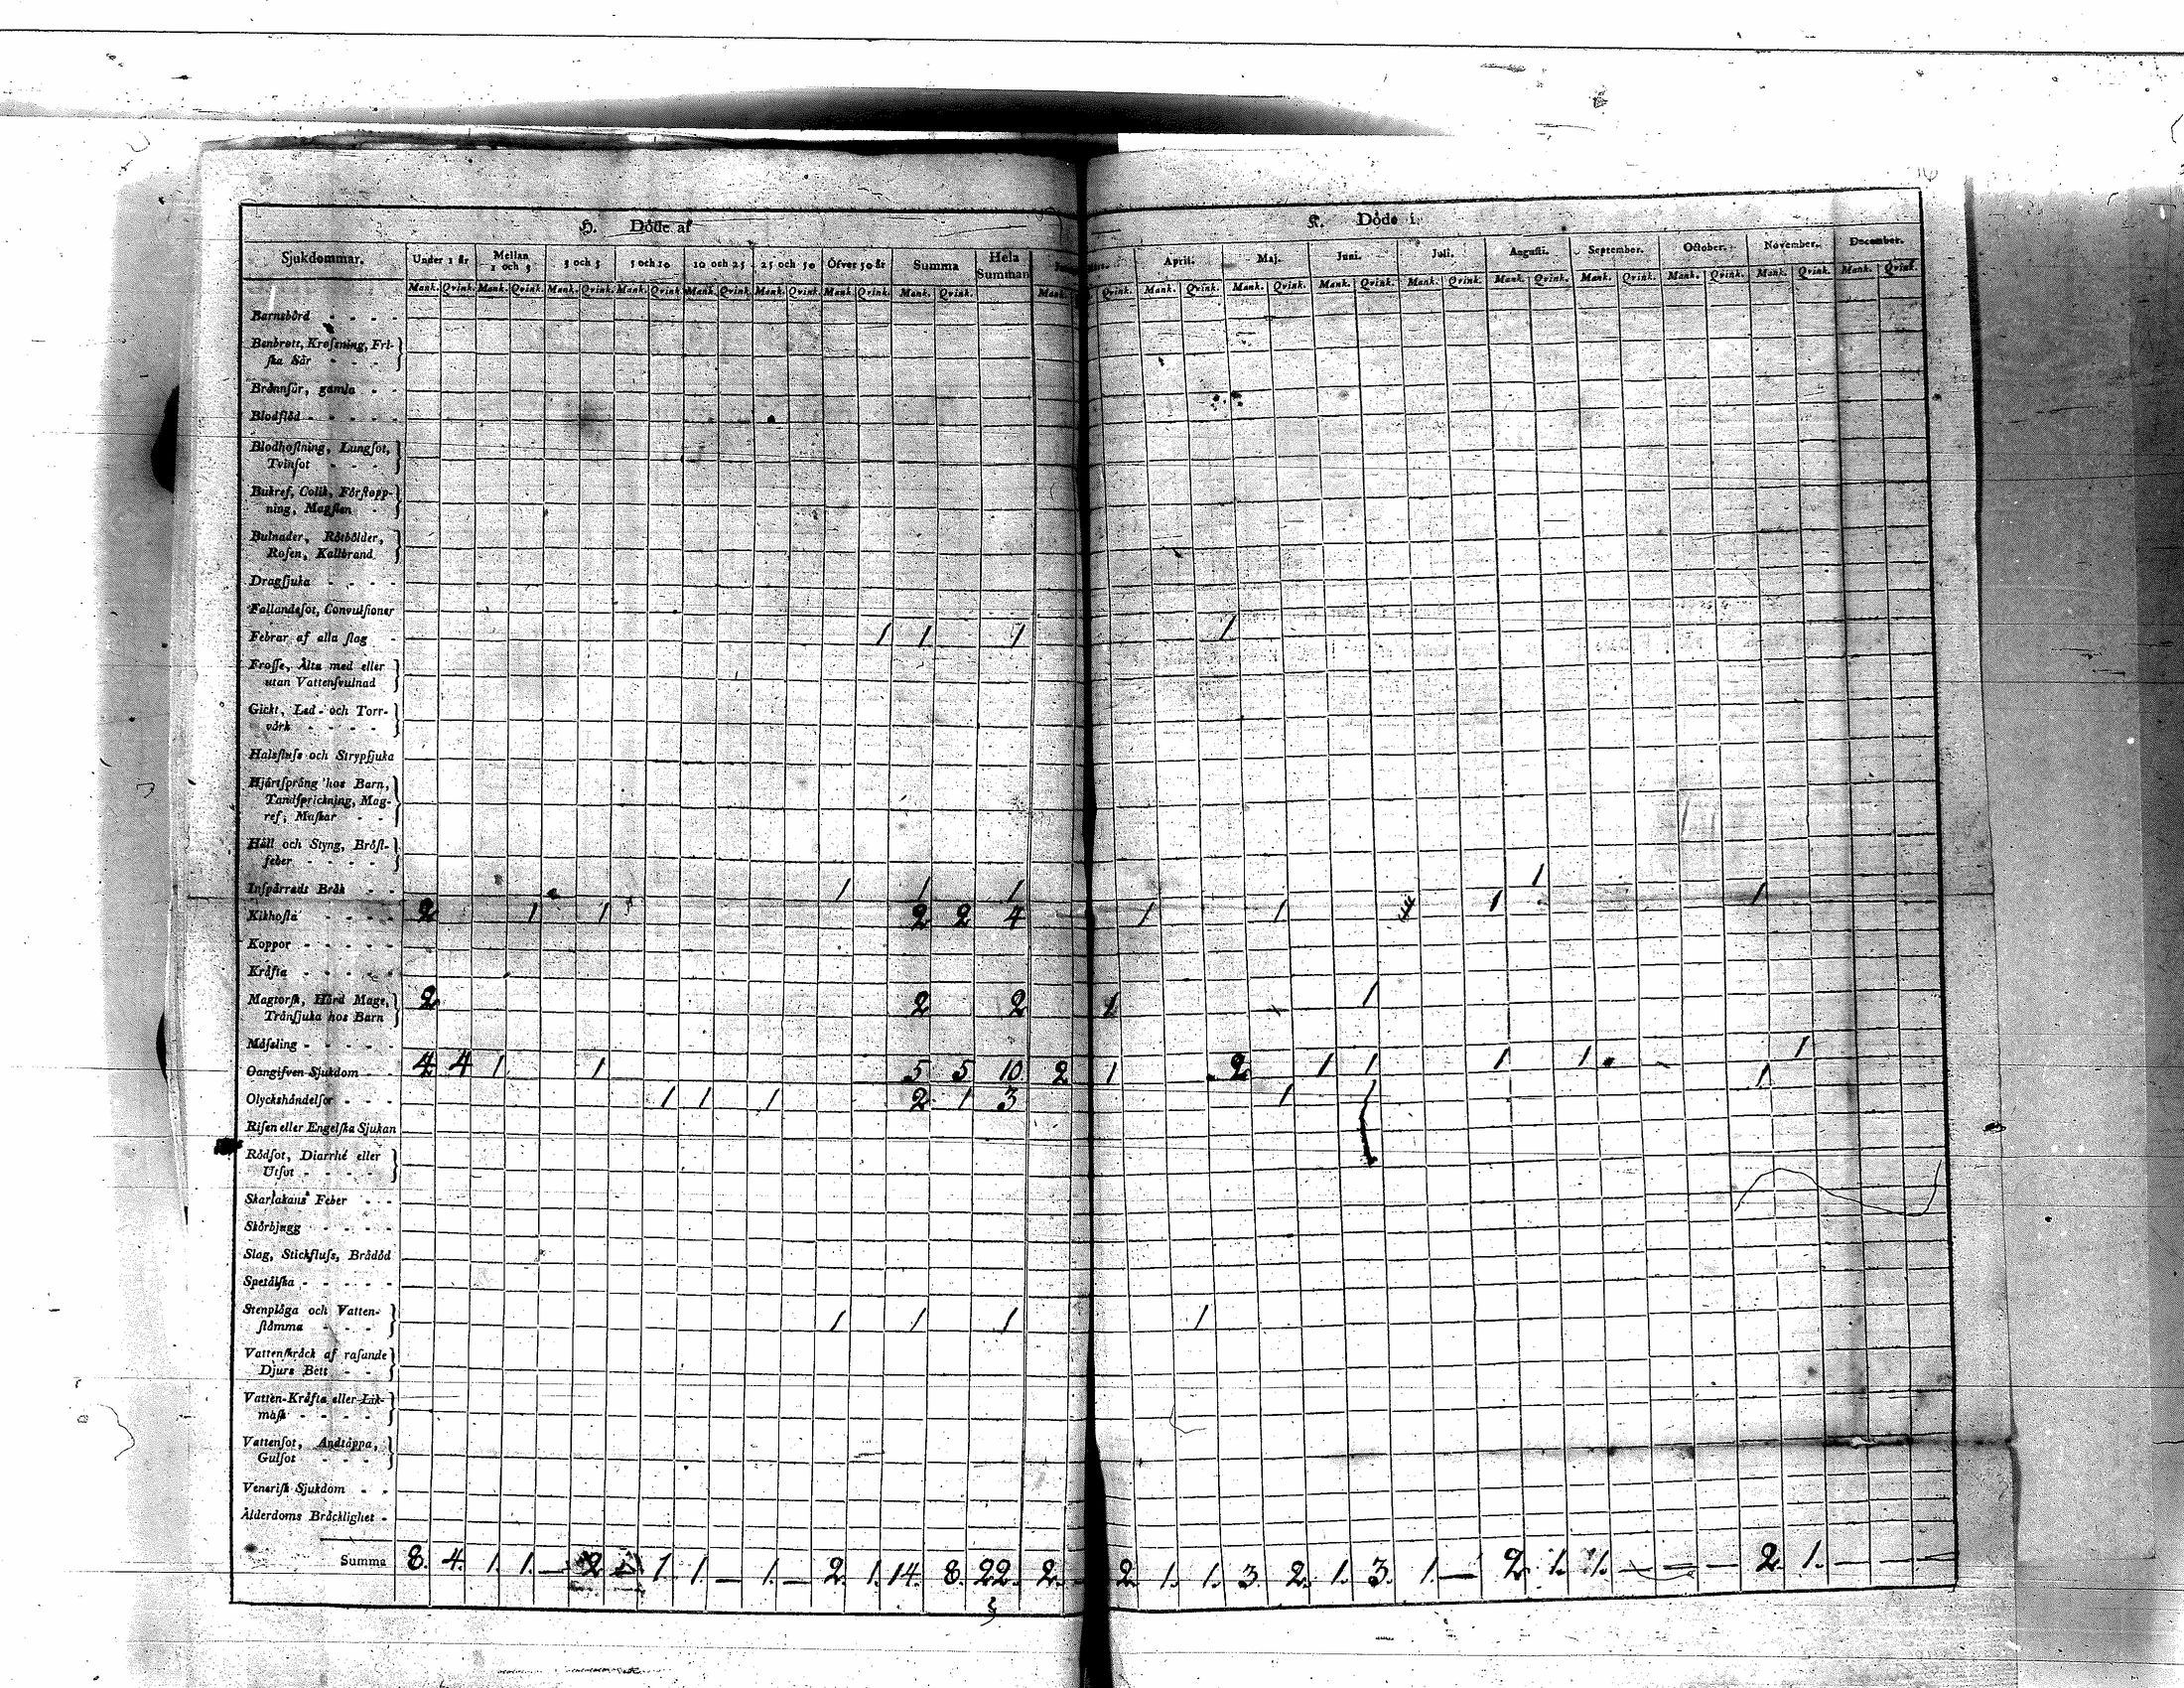 H. Döde af
K. Döde i.
Sjukdommar. Under 1 år Mellan 1 och 3 3 och 5 5 och 10 10 och 25 25 och 50 Öfver 50 år Summa Hela Summan
April. Maj. Juni. Juli. Augusti. September. October. November. December.
Mank. Qvink. Mank. Qvink. Mank. Qvink. Mank. Qvink. Mank. Qvink. Mank. Qvink. Mank. Qvink. Mank. Qvink. Mank.
Qvink. Mank. Qvink. Mank. Qvink. Mank. Qvink. Mank. Qvink. Mank. Qvink. Mank. Qvink. Mank. Qvink. Mank. Qvink. Mank. Qvink.
Barnsbörd - - - -
Benbrott, Krossning, Fri-
ska Sår - - -
Brännsår, gamla - -
Blodflöd - - - - -
Blodhostning, Lungsot,
Tvinsot - - -
Bukref, Colik, Förstopp-
ning, Magsten -
Bulnader, Rötbölder,
Rosen, Kallbrand
Dragsjuka - - - -
Fallandesot, Convulsioner
Febrar af alla slag - 1 1 1 1
Frossa, Älta med eller
utan Vattensvulnad
Gickt, Led- och Torr-
värk - - - -
Halsfluss och Strypsjuka
Hjärtsprång hos Barn,
Tandsprickning, Mag-
ref, Maskar - -
Håll och Styng, Bröst-
feber - - - -
Inspärradt Bråk - - 1 1 1 1
Kikhosta - - - - 2 1 1 2 2 4 1 1 1 1
Koppor - - - - -
Kräfta - - - - -
Magtorsk, Hård Mage,
Tränsjuka hos Barn 2 2 2 1 1
Mässling - - - - -
Oangifven Sjukdom - - 4 4 1 1 5 5 10 2 1 2 1 1 1 1 1
Olyckshändelser - - - 1 1 1 2 1 3 1 1 1
Risen eller Engelska Sjukan
Rödsot, Diarrhé eller
Utsot - - - -
Skarlakans Feber - - -
Skörbjugg - - - -
Slag, Stickfluss, Brådöd
Spetälska - - - - -
Stenplåga och Vatten-
stämma - - - 1 1 1 1
Vattenskräck af rasande
Djurs Bett - -
Vatten-Kräfta eller Lik-
mask - - - -
Vattensot, Andtäppa,
Gulsot - - -
Venerisk Sjukdom - -
Ålderdoms Bräcklighet -
Summa 8. 4. 1. 1. — 2 1. 1. — 1. — 2. 1. 14. 8. 22. 2. — 2. 1. 1. 3. 2. 1. 3. 1. — 2. 1. 1. — — — 2. 1. — — —